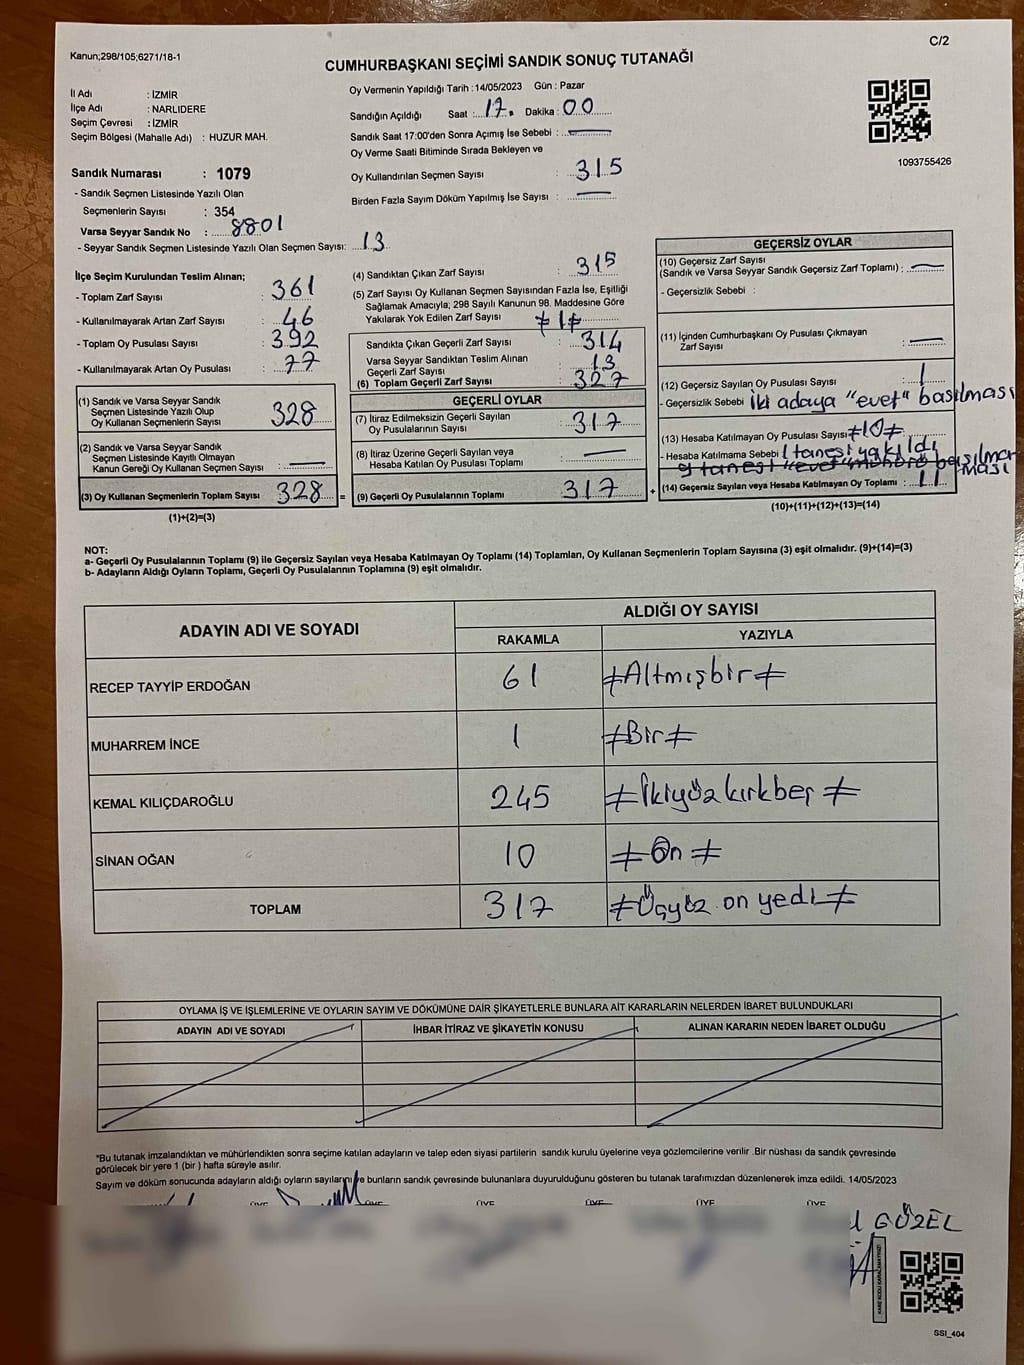 C/2
Kanun;298/105;6271/18-1
CUMHURBAŞKANI SEÇİMİ SANDIK SONUÇ TUTANAĞI
İl Adı : İZMİR
İlçe Adı : NARLIDERE
Seçim Çevresi : İZMİR
Seçim Bölgesi (Mahalle Adı) : HUZUR MAH.
Sandık Numarası : 1079
- Sandık Seçmen Listesinde Yazılı Olan
Seçmenlerin Sayısı : 354
Varsa Seyyar Sandık No : 8801
- Seyyar Sandık Seçmen Listesinde Yazılı Olan Seçmen Sayısı: 13
Oy Vermenin Yapıldığı Tarih :14/05/2023 Gün : Pazar
Sandığın Açıldığı Saat : 17. Dakika : 00
Sandık Saat 17:00'den Sonra Açımış İse Sebebi : —
Oy Verme Saati Bitiminde Sırada Bekleyen ve
Oy Kullandırılan Seçmen Sayısı : 315
Birden Fazla Sayım Döküm Yapılmış İse Sayısı : —
1093755426
İlçe Seçim Kurulundan Teslim Alınan;
- Toplam Zarf Sayısı : 361
- Kullanılmayarak Artan Zarf Sayısı : 46
- Toplam Oy Pusulası Sayısı : 392
- Kullanılmayarak Artan Oy Pusulası : 77
(1) Sandık ve Varsa Seyyar Sandık
Seçmen Listesinde Yazılı Olup
Oy Kullanan Seçmenlerin Sayısı : 328
(2) Sandık ve Varsa Seyyar Sandık
Seçmen Listesinde Kayıtlı Olmayan
Kanun Gereği Oy Kullanan Seçmen Sayısı : —
(3) Oy Kullanan Seçmenlerin Toplam Sayısı : 328 =
(1)+(2)=(3)
(4) Sandıktan Çıkan Zarf Sayısı : 315
(5) Zarf Sayısı Oy Kullanan Seçmen Sayısından Fazla İse, Eşitliği
Sağlamak Amacıyla; 298 Sayılı Kanunun 98. Maddesine Göre
Yakılarak Yok Edilen Zarf Sayısı : ≠1≠
Sandıkta Çıkan Geçerli Zarf Sayısı : 314
Varsa Seyyar Sandıktan Teslim Alınan
Geçerli Zarf Sayısı : 13
(6) Toplam Geçerli Zarf Sayısı : 327
GEÇERLİ OYLAR
(7) İtiraz Edilmeksizin Geçerli Sayılan
Oy Pusulalarının Sayısı : 317
(8) İtiraz Üzerine Geçerli Sayılan veya
Hesaba Katılan Oy Pusulası Toplamı : —
(9) Geçerli Oy Pusulalarının Toplamı : 317 +
GEÇERSİZ OYLAR
(10) Geçersiz Zarf Sayısı
(Sandık ve Varsa Seyyar Sandık Geçersiz Zarf Toplamı) : —
- Geçersizlik Sebebi :
(11) İçinden Cumhurbaşkanı Oy Pusulası Çıkmayan
Zarf Sayısı : —
(12) Geçersiz Sayılan Oy Pusulası Sayısı : 1
- Geçersizlik Sebebi İki adaya "evet" basılması
(13) Hesaba Katılmayan Oy Pusulası Sayısı ≠10≠
- Hesaba Katılmama Sebebi 1 tanesi yakıldı
9 tanesi "evet" mührü basılma
ması
(14) Geçersiz Sayılan veya Hesaba Katılmayan Oy Toplamı : 11
(10)+(11)+(12)+(13)=(14)
NOT:
a- Geçerli Oy Pusulalarının Toplamı (9) ile Geçersiz Sayılan veya Hesaba Katılmayan Oy Toplamı (14) Toplamları, Oy Kullanan Seçmenlerin Toplam Sayısına (3) eşit olmalıdır. (9)+(14)=(3)
b- Adayların Aldığı Oyların Toplamı, Geçerli Oy Pusulalarının Toplamına (9) eşit olmalıdır.
ADAYIN ADI VE SOYADI ALDIĞI OY SAYISI
RAKAMLA YAZIYLA
RECEP TAYYİP ERDOĞAN 61 ≠Altmışbir≠
MUHARREM İNCE 1 ≠Bir≠
KEMAL KILIÇDAROĞLU 245 ≠İkiyüzkırkbeş≠
SİNAN OĞAN 10 ≠On≠
TOPLAM 317 ≠Üçyüz on yedi≠
OYLAMA İŞ VE İŞLEMLERİNE VE OYLARIN SAYIM VE DÖKÜMÜNE DAİR ŞİKAYETLERLE BUNLARA AİT KARARLARIN NELERDEN İBARET BULUNDUKLARI
ADAYIN ADI VE SOYADI İHBAR İTİRAZ VE ŞİKAYETİN KONUSU ALINAN KARARIN NEDEN İBARET OLDUĞU
*Bu tutanak imzalandıktan ve mühürlendikten sonra seçime katılan adayların ve talep eden siyasi partilerin sandık kurulu üyelerine veya gözlemcilerine verilir .Bir nüshası da sandık çevresinde
görülecek bir yere 1 (bir ) hafta süreyle asılır.
Sayım ve döküm sonucunda adayların aldığı oyların sayılarını ve bunların sandık çevresinde bulunanlara duyurulduğunu gösteren bu tutanak tarafımızdan düzenlenerek imza edildi. 14/05/2023
ÜYE ÜYE ÜYE ÜYE ÜYE ÜYE
GÜZEL
KARE KODU KARALAMAYINIZ!
SSI_404